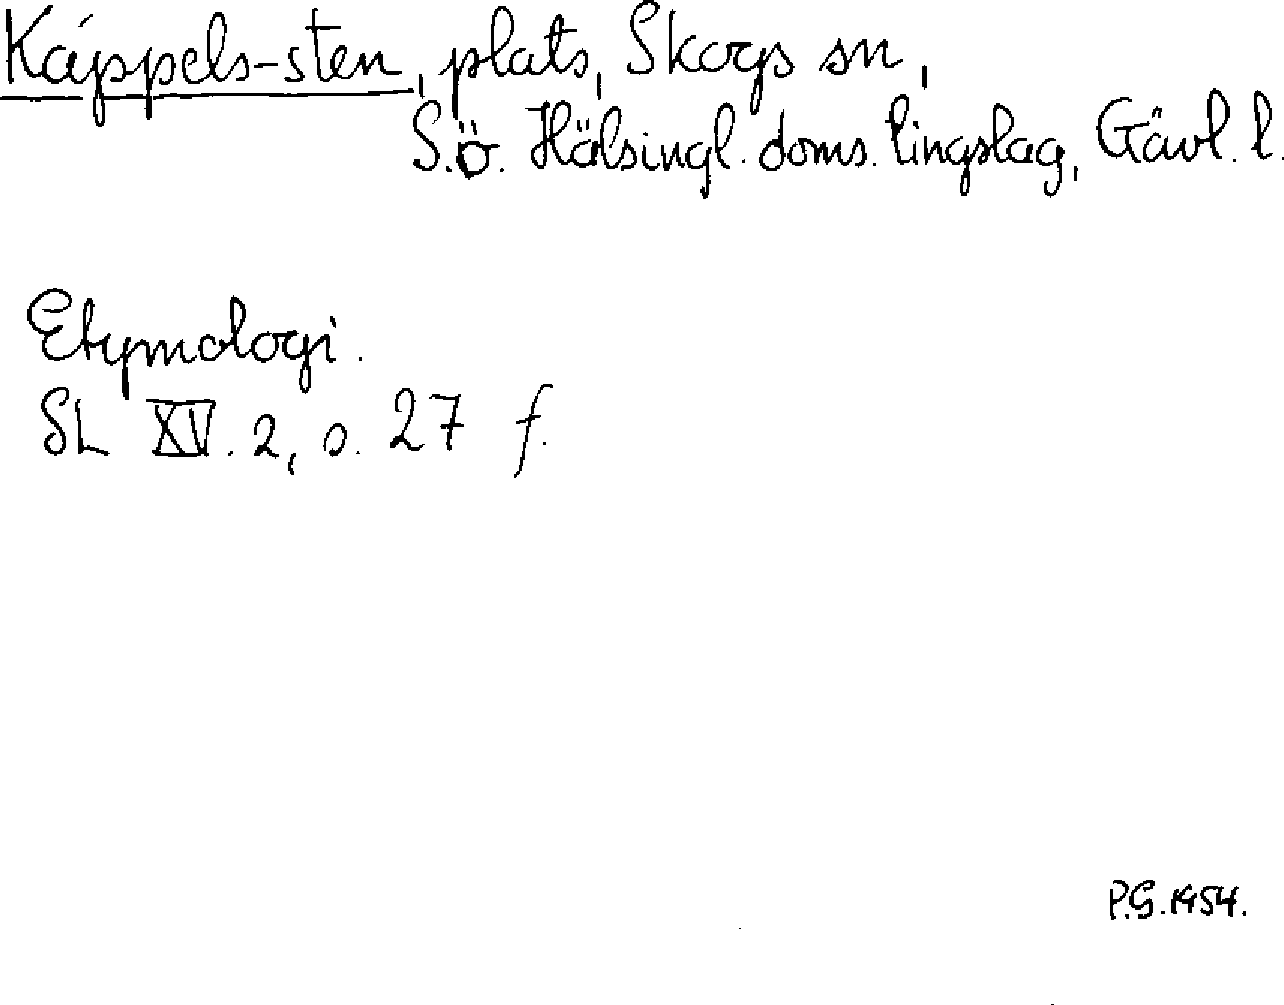 Káppels-sten, plats, Skogs sn,
S.ö. Hälsingl. doms. tingslag, Gävl. l.
Etymologi.
SL XV. 2, s. 27 f.
P.G. 1954.